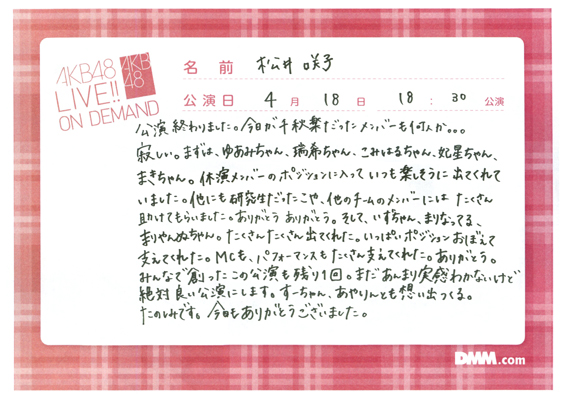 AKB48
LIVE!!
ON DEMAND
AKB
48
名前 松井咲子
公演日 4月 18日 18:30公演
公演終わりました。今日が千秋楽だったメンバーも何人か。。。
寂しい。まずは、ゆあみちゃん、瑞希ちゃん、こみはるちゃん、妃星ちゃん、
まきちゃん。休演メンバーのポジションに入っていつも楽しそうに出てくれて
いました。他にも研究生だったこや、他のチームのメンバーにはたくさん
助けてもらいました。ありがとうありがとう。そして、いずちゃん、まりなってる、
まりやんぬちゃん。たくさんたくさん出てくれた。いっぱいポジションおぼえて
支えてくれた。MCも、パフォーマンスもたくさん支えてくれた。ありがとう。
みんなで創ったこの公演も残り1回。まだあんまり実感わかないけど
絶対良い公演にします。すーちゃん、あやりんとも想い出つくる。
たのしみです。今日もありがとうございました。
DMM.com